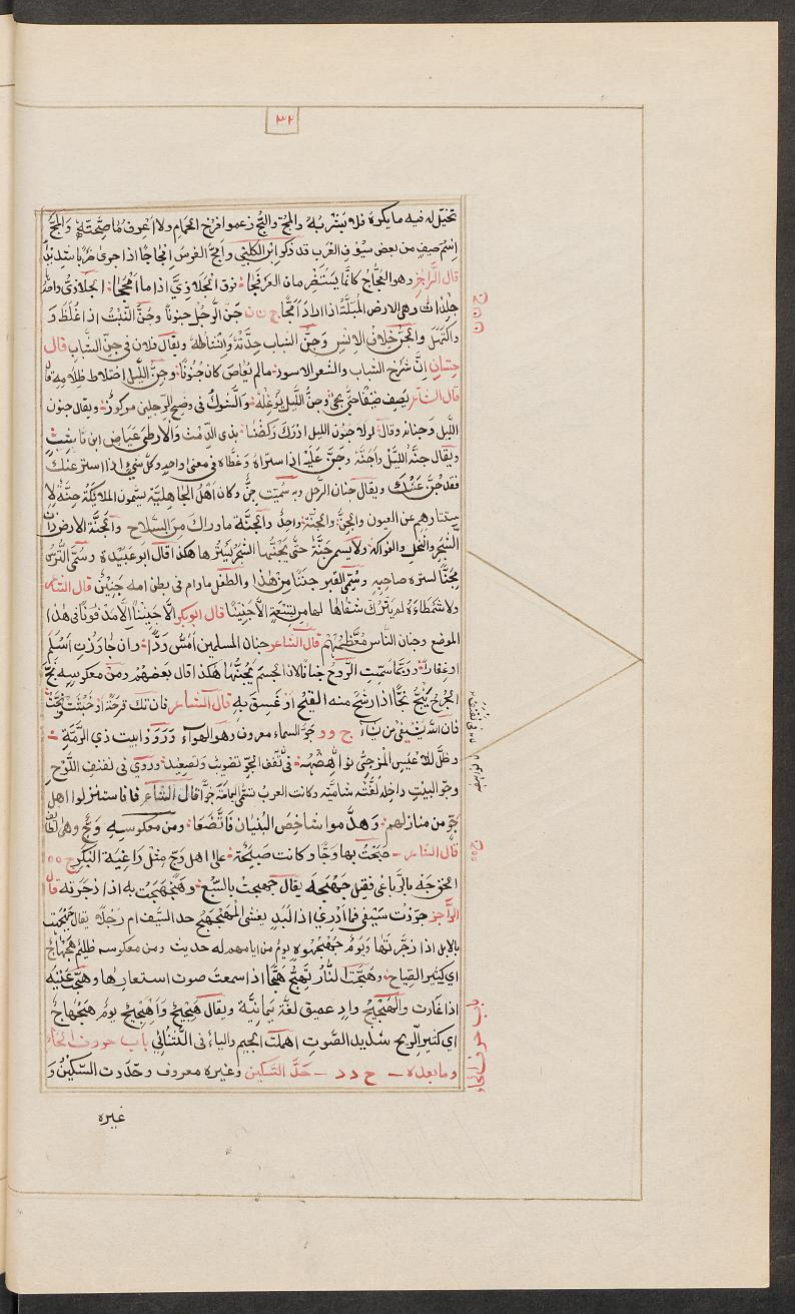 ٣٢
تخيّل له فيه ما يكره فلا يشربه والمج والبج زعموا فرخ الحمام ولا اعرف ما صحتها والمج
اسم سيف من بعض سيوف العرب قد ذكره ابن الكلبي وامجّ الفرس امجاجًا اذا جرى جريا شديدًا
قال الراجز وهو العجاج كانما يستضرمان العرفجا فوق الجلاذيّ اذا ما امججا الجلاذي واحدها
جلذاة وهي الارض الصلبة اذا اراد امجّا ج ن ن جنّ الرجل جنونا وجنّ النبت اذا غلظ و
واكتهل والجن خلاف الانس وجنّ الشباب حدّته وانشاطه ويقال فلان في جنّ الشباب قال
حسان ان شرخ الشباب والشعر الاسود ما لم يعاص كان جنونا وجنّ الليل اختلاط ظلامه
قال الشاعر يصف ضيفا حتى يجيء وجنّ الليل يوغله والشوك في وضح الرجلين مركوز ويقال جنون
الليل وجنانه وقال لولا جنون الليل ادرك ركضنا بذي الرمث والارطى عياض ابن ناشب
ويقال جنّه الليل واجنّه وجنّ عليه اذا ستره وغطاه في معنى واحد وكل شيء اذا استتر عنك
فقد جنّ عنك ويقال جنان الرجل وبه سميت جنّ وكان اهل الجاهلية يسمون الملايكة جنّة لا
ستتارهم عن العيون والجنّ والجنّة واحد والجنّة ما واراك من السلاح والجنّة الارض ذات
الشجر والنخل والفواكه ولا يسمى جنّة حتى يجنّها الشجر يسترها هكذا قال ابو عبيدة وسمّي الترس
مجنّا لستره صاحبه وسمّي القبر جننا من هذا والطفل ما دام في بطن امه جنين قال الشاعر
ولا شمطاء لم يترك شفاها لها من تسعة الا جنينا قال ابو بكر الا جنينا الا مدفونا في هذا
الموضع وجنان الناس معظمهم قال الشاعر جنان المسلمين امسّ ودّا وان جاورت اسلم
او غفارا وربما سمّيت الروح جنانا لان الجسم يجنّها هكذا قال بعضهم ومن معكوسه نجّ
الجرح ينجّ نجّا اذا رشح منه القيح او غسق به قال الشاعر فان تك قرحة خبثت ونجّت
فان الله يشفي من يشاء ج وو جوّ السماء معروف وهو الهواء وروو ابيت ذي الرمة
وظل للاعيس المزجيّ نواهضه في نفنف الجوّ تصويب وتصعيد وروي في نفنف اللوح
وجوّ البيت داخله لغة شامية وكانت العرب تسمّي اليمامة جوّا قال الشاعر فاستنزلوا اهل
جوّ من منازلهم وهدّموا شاخص البنيان فاتّضعا ومن معكوسه وجّ وهي الطائف
قال الشاعر صبحت بها وجّا وكانت صبيحة على اهل وجّ مثل راغية البكر ج ه ه
الحق جه بالرباعي فقيل جهجه يقال جهجهت بالسبع وهجهجت به اذا زجرته قال
الراجز جرّدت سيفي فما ادري اذا لبد يغشى المهجهج حد السيف ام رجلا يقال جهجهت
بالابل اذا زجرتها ويوم جهجهوه يوم من ايامهم له حديث ومن معكوسه ظليم هجهاج
اي كثير الصياح وهجّت النار تهجّ هجّا اذا سمعت صوت استعارها وهجّت عينه
اذا غارت والهجيج وادٍ عميق لغة يمانية ويقال هجيج واهجيج يوم هجهاج
اي كثير الريح شديد الصوت اهملت الجيم والياء في الثنائي باب حرف الحاء
وما بعده ح د د حدّ السكين وغيره معروف وحدّدت السكين و
غيره
ج ن ن
ج ه ه
باب حرف الحاء